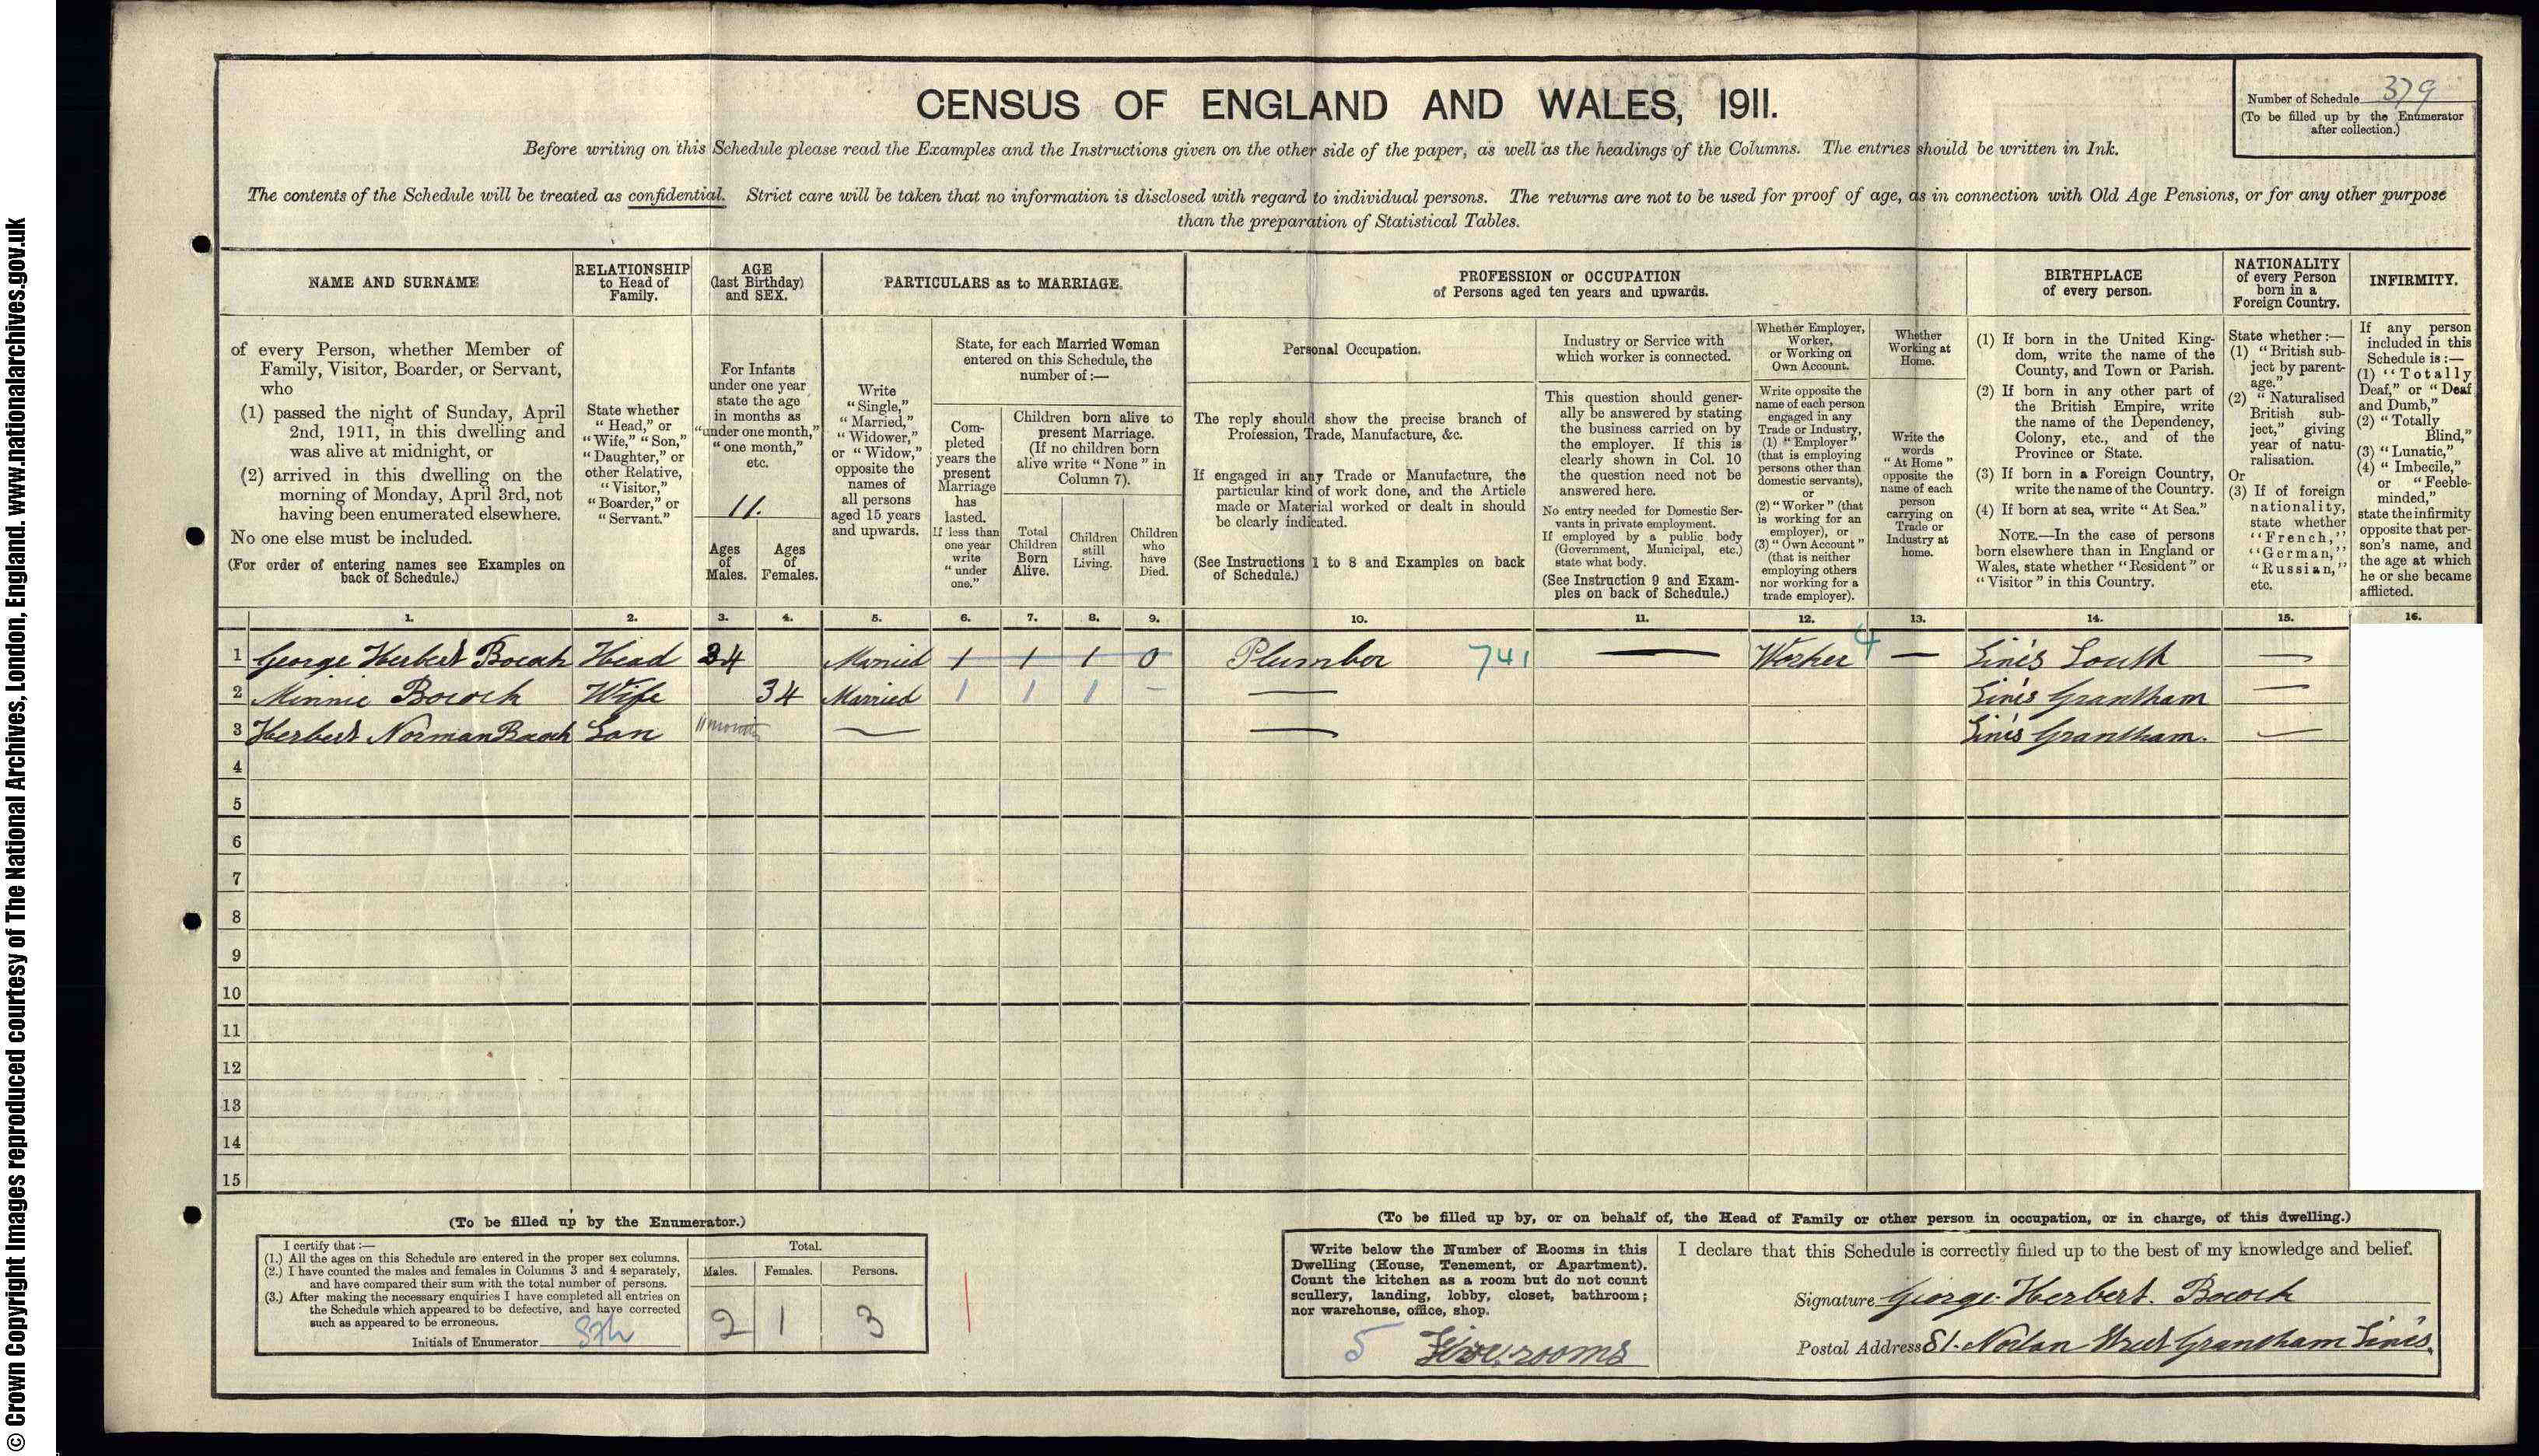 © Crown Copyright Images reproduced courtesy of The National Archives, London, England. www.nationalarchives.gov.uk
CENSUS OF ENGLAND AND WALES, 1911.
Number of Schedule 379
(To be filled up by the Enumerator
after collection.)
Before writing on this Schedule please read the Examples and the Instructions given on the other side of the paper, as well as the headings of the Columns. The entries should be written in Ink.
The contents of the Schedule will be treated as confidential. Strict care will be taken that no information is disclosed with regard to individual persons. The returns are not to be used for proof of age, as in connection with Old Age Pensions, or for any other purpose
than the preparation of Statistical Tables.
NAME AND SURNAME
of every Person, whether Member of
Family, Visitor, Boarder, or Servant,
who
(1) passed the night of Sunday, April
2nd, 1911, in this dwelling and
was alive at midnight, or
(2) arrived in this dwelling on the
morning of Monday, April 3rd, not
having been enumerated elsewhere.
No one else must be included.
(For order of entering names see Examples on
back of Schedule.)
RELATIONSHIP
to Head of
Family.
State whether
"Head," or
"Wife," "Son,"
"Daughter," or
other Relative,
"Visitor,"
"Boarder," or
"Servant."
AGE
(last Birthday)
and SEX.
For Infants
under one year
state the age
in months as
"under one month,"
"one month,"
etc.
11.
Ages
of
Males.
Ages
of
Females.
PARTICULARS as to MARRIAGE.
Write
"Single,"
"Married,"
"Widower,"
or "Widow,"
opposite the
names of
all persons
aged 15 years
and upwards.
State, for each Married Woman
entered on this Schedule, the
number of:—
Com-
pleted
years the
present
Marriage
has
lasted.
If less than
one year
write
"under
one."
Children born alive to
present Marriage.
(If no children born
alive write "None" in
Column 7).
Total
Children
Born
Alive.
Children
still
Living.
Children
who
have
Died.
PROFESSION or OCCUPATION
of Persons aged ten years and upwards.
Personal Occupation.
The reply should show the precise branch of
Profession, Trade, Manufacture, &c.
If engaged in any Trade or Manufacture, the
particular kind of work done, and the Article
made or Material worked or dealt in should
be clearly indicated.
(See Instructions 1 to 8 and Examples on back
of Schedule.)
Industry or Service with
which worker is connected.
This question should gener-
ally be answered by stating
the business carried on by
the employer. If this is
clearly shown in Col. 10
the question need not be
answered here.
No entry needed for Domestic Ser-
vants in private employment.
If employed by a public body
(Government, Municipal, etc.)
state what body.
(See Instruction 9 and Exam-
ples on back of Schedule.)
Whether Employer,
Worker,
or Working on
Own Account.
Write opposite the
name of each person
engaged in any
Trade or Industry,
(1) "Employer"
(that is employing
persons other than
domestic servants),
or
(2) "Worker" (that
is working for an
employer), or
(3) "Own Account"
(that is neither
employing others
nor working for a
trade employer).
Whether
Working at
Home.
Write the
words
"At Home"
opposite the
name of each
person
carrying on
Trade or
Industry at
home.
BIRTHPLACE
of every person.
(1) If born in the United King-
dom, write the name of the
County, and Town or Parish.
(2) If born in any other part of
the British Empire, write
the name of the Dependency,
Colony, etc., and of the
Province or State.
(3) If born in a Foreign Country,
write the name of the Country.
(4) If born at sea, write "At Sea."
NOTE.—In the case of persons
born elsewhere than in England or
Wales, state whether "Resident" or
"Visitor" in this Country.
NATIONALITY
of every Person
born in a
Foreign Country.
State whether:—
(1) "British sub-
ject by parent-
age."
(2) "Naturalised
British sub-
ject," giving
year of natu-
ralisation.
Or
(3) If of foreign
nationality,
state whether
"French,"
"German,"
"Russian,"
etc.
INFIRMITY.
If any person
included in this
Schedule is:—
(1) "Totally
Deaf," or "Deaf
and Dumb,"
(2) "Totally
Blind,"
(3) "Lunatic,"
(4) "Imbecile,"
or "Feeble-
minded,"
state the infirmity
opposite that per-
son's name, and
the age at which
he or she became
afflicted.
1. 2. 3. 4. 5. 6. 7. 8. 9. 10. 11. 12. 13. 14. 15. 16.
1 George Herbert Bocock Head 34 Married 1 1 1 0 Plumber 741 — Worker 4 — Lincs South —
2 Minnie Bocock Wife 34 Married 1 1 1 – — Lincs Grantham —
3 Herbert Norman Bocock Son 11 months — — Lincs Grantham. —
4
5
6
7
8
9
10
11
12
13
14
15
(To be filled up by the Enumerator.)
I certify that:—
(1.) All the ages on this Schedule are entered in the proper sex columns.
(2.) I have counted the males and females in Columns 3 and 4 separately,
and have compared their sum with the total number of persons.
(3.) After making the necessary enquiries I have completed all entries on
the Schedule which appeared to be defective, and have corrected
such as appeared to be erroneous.
Initials of Enumerator
Total.
Males. Females. Persons.
2 1 3
(To be filled up by, or on behalf of, the Head of Family or other person in occupation, or in charge, of this dwelling.)
Write below the Number of Rooms in this
Dwelling (House, Tenement, or Apartment).
Count the kitchen as a room but do not count
scullery, landing, lobby, closet, bathroom;
nor warehouse, office, shop.
5 Five rooms
I declare that this Schedule is correctly filled up to the best of my knowledge and belief.
Signature George Herbert. Bocock
Postal Address 81. Norton Street Grantham Lincs.